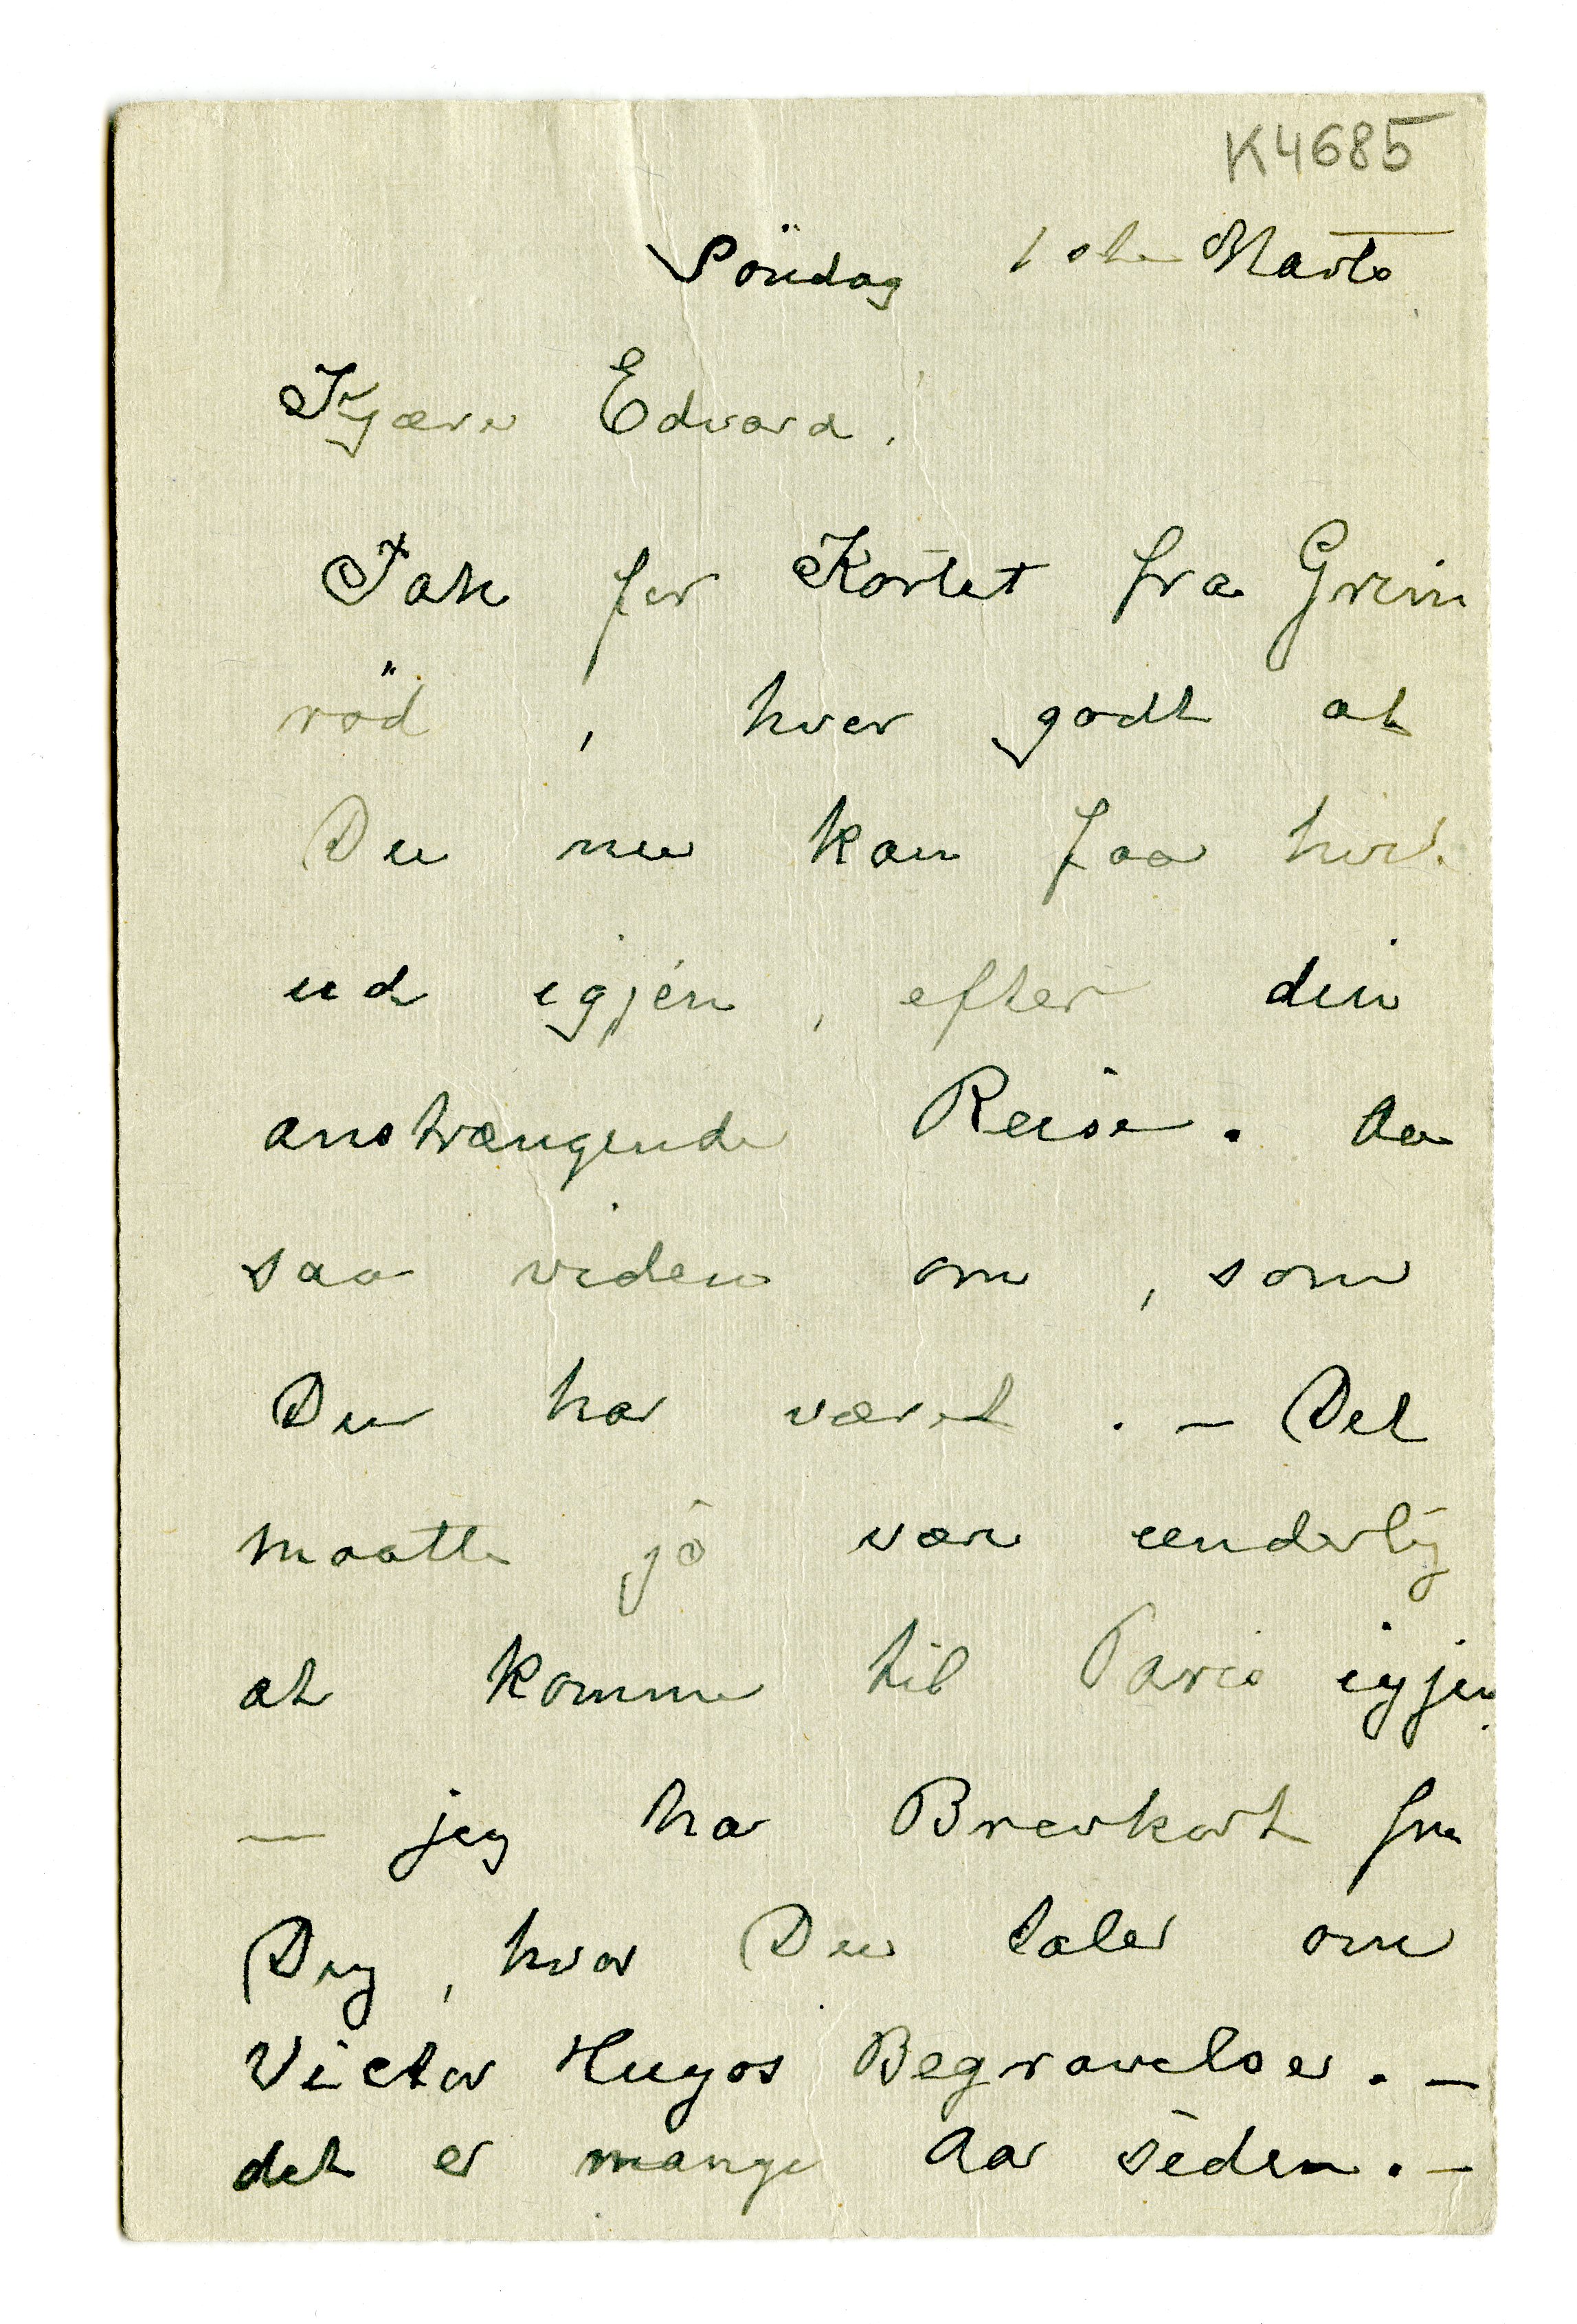 K4685
Söndag 1ste Marts
Kjære Edvard.
Tak for Kortet fra Grim
röd, hvor godt at
Du nu kan faa hvil
ud igjen, efter din
anstrængende Reise. Aa
saa viden om, som
Du har været. – Det
maatte jo være underlig
at komme til Paris igjen
– jeg har Brevkort fra
Dig, hvor Du taler om
Victor Hugos Begravelse. –
det er mange Aar siden. –